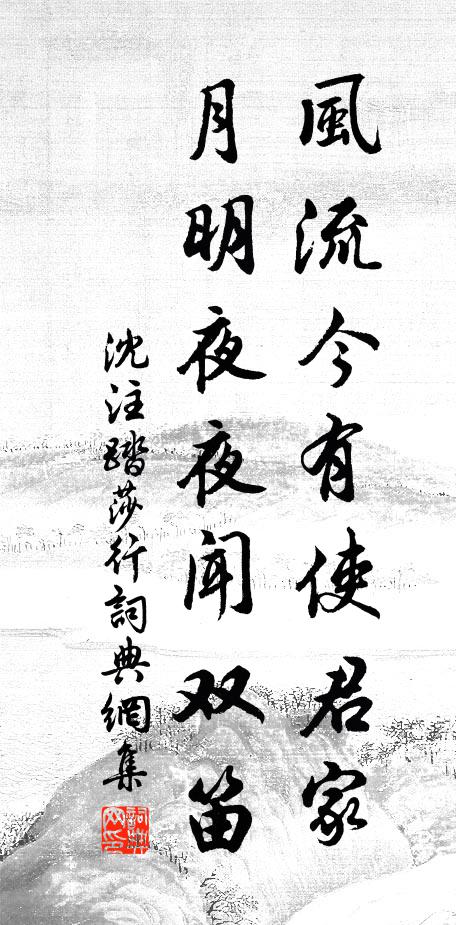 風流今有使君家
月明夜夜闻双笛
沈注踏莎行詞典網集